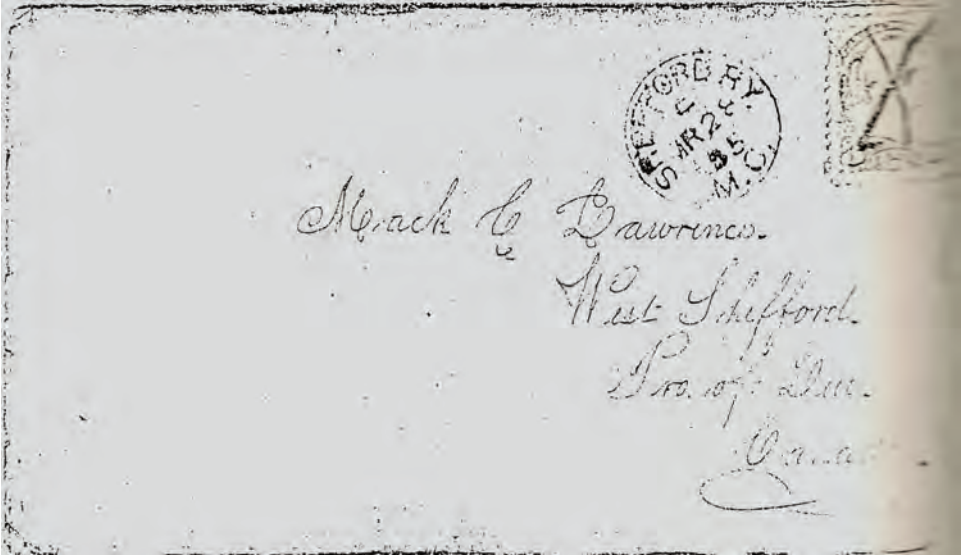 SHEFFORD RY.
MR 28
85
M.C.
Mack C Lawrence.
West Shefford.
Pro. of Que.
Cana